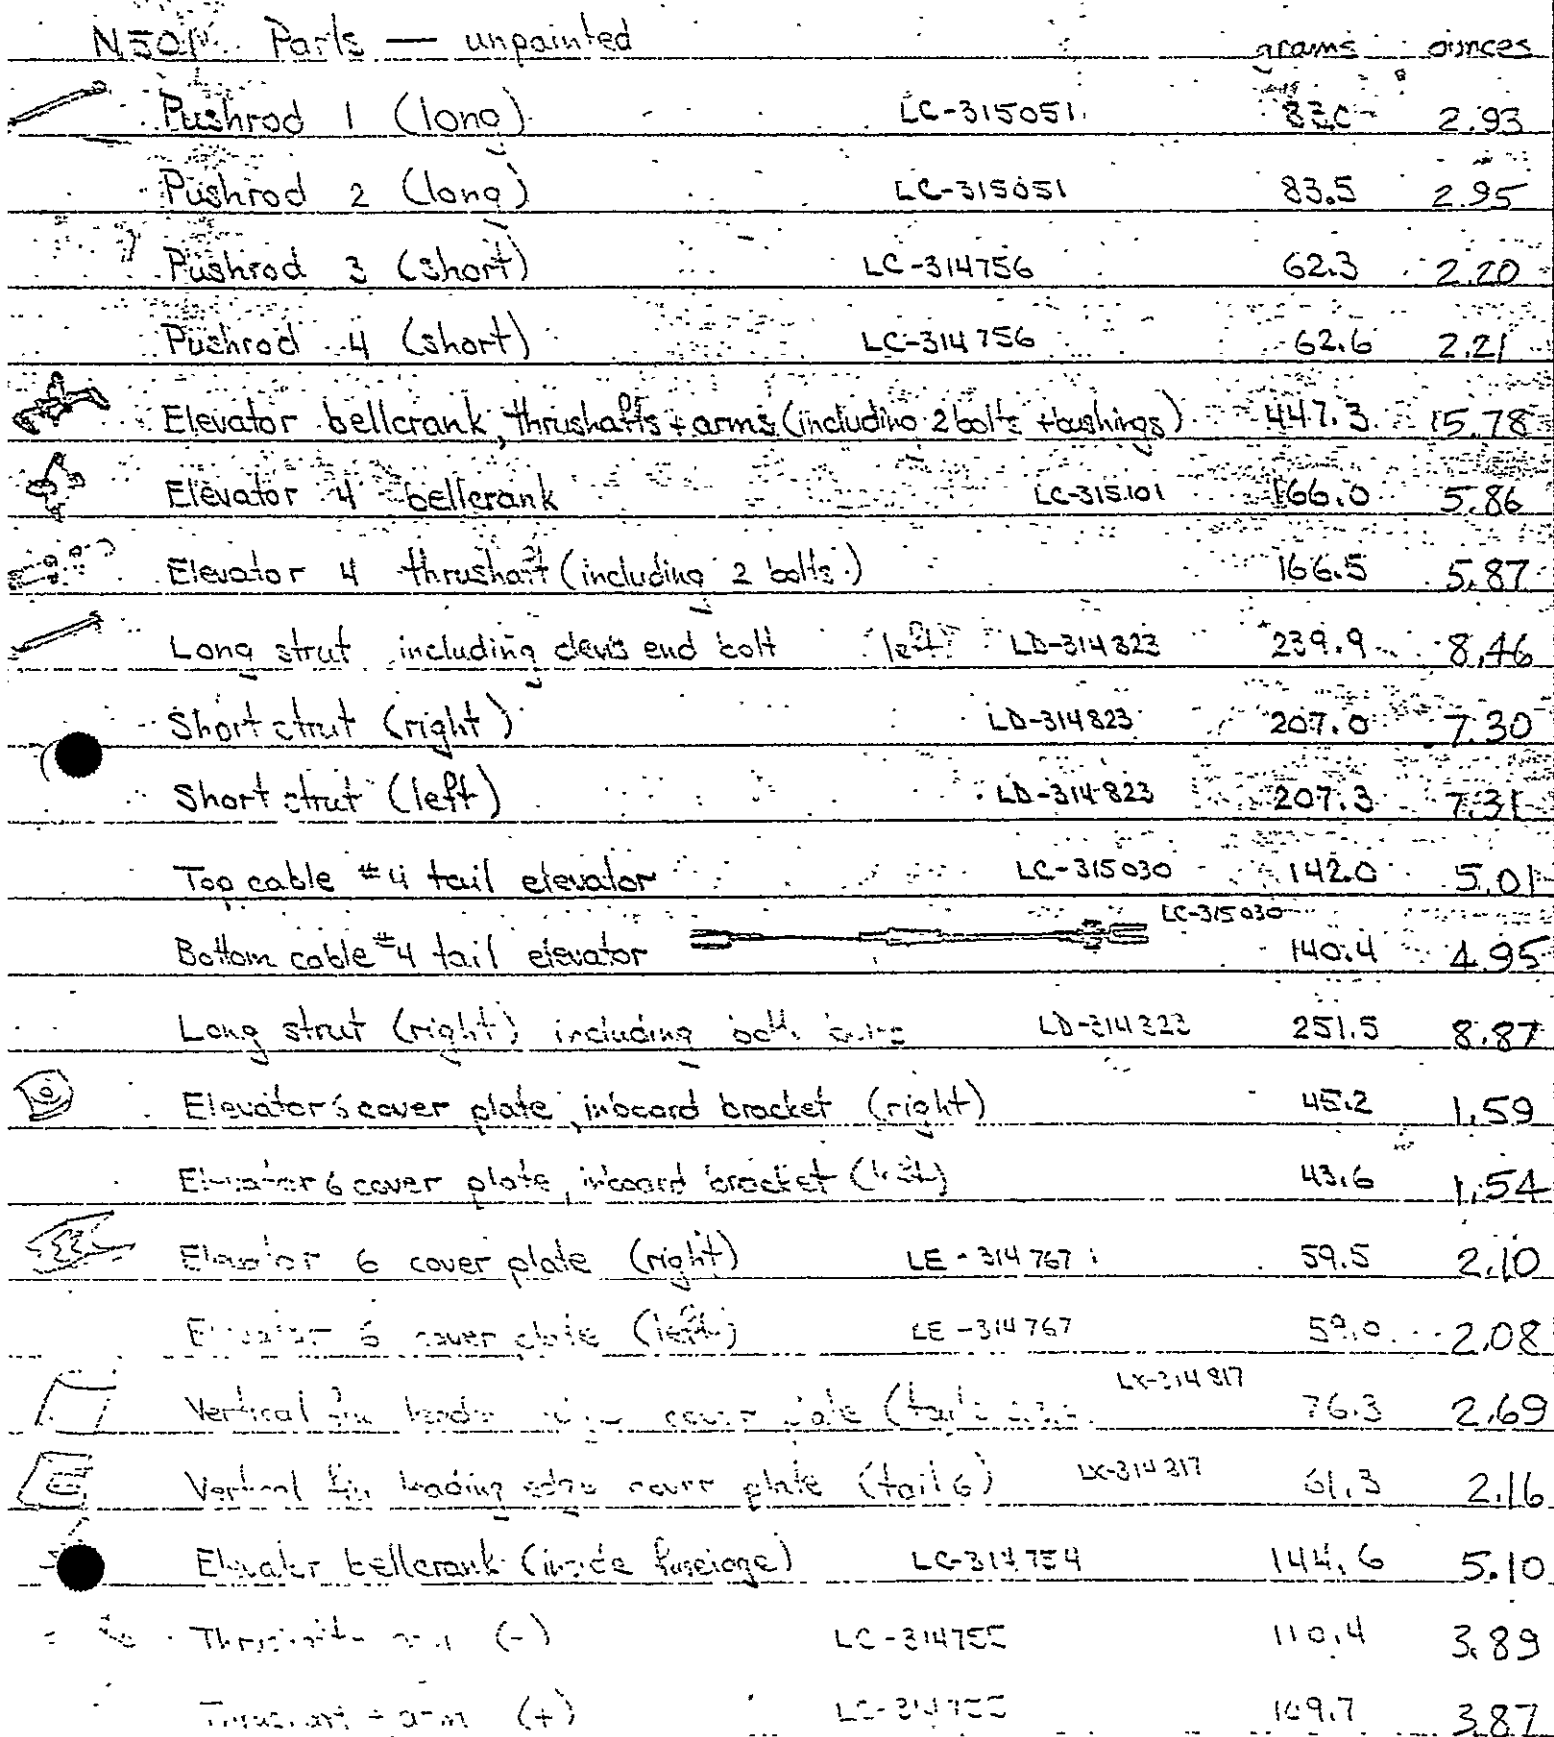 N501 Parts — unpainted grams ounces
Pushrod 1 (long) LC-315051 83.0 2.93
Pushrod 2 (long) LC-315051 83.5 2.95
Pushrod 3 (short) LC-314756 62.3 2.20
Pushrod 4 (short) LC-314756 62.6 2.21
Elevator bellcrank, thrushafts + arms (including 2 bolts + bushings) 447.3 15.78
Elevator 4 bellcrank LC-315101 166.0 5.86
Elevator 4 thrushaft (including 2 bolts) 166.5 5.87
Long strut including clevis end bolt left LD-314823 239.9 8.46
Short strut (right) LD-314823 207.0 7.30
Short strut (left) LD-314823 207.3 7.31
Top cable #4 tail elevator LC-315030 142.0 5.01
Bottom cable #4 tail elevator LC-315030 140.4 4.95
Long strut (right) including LD-314823 251.5 8.87
Elevator 6 cover plate, inboard bracket (right) 45.2 1.59
Elevator 6 cover plate, inboard bracket (left) 43.6 1.54
Elevator 6 cover plate (right) LE-314767 59.5 2.10
Elevator 6 cover plate (left) LE-314767 59.0 2.08
Vertical fin leading edge cover plate (tail LX-314817 76.3 2.69
Vertical fin leading edge cover plate (tail 6) LX-314817 61.3 2.16
Elevator bellcrank (inside fuselage) LC-314754 144.6 5.10
Thrushaft arm (-) LC-314755 110.4 3.89
Thrushaft + arm (+) LC-314755 109.7 3.87